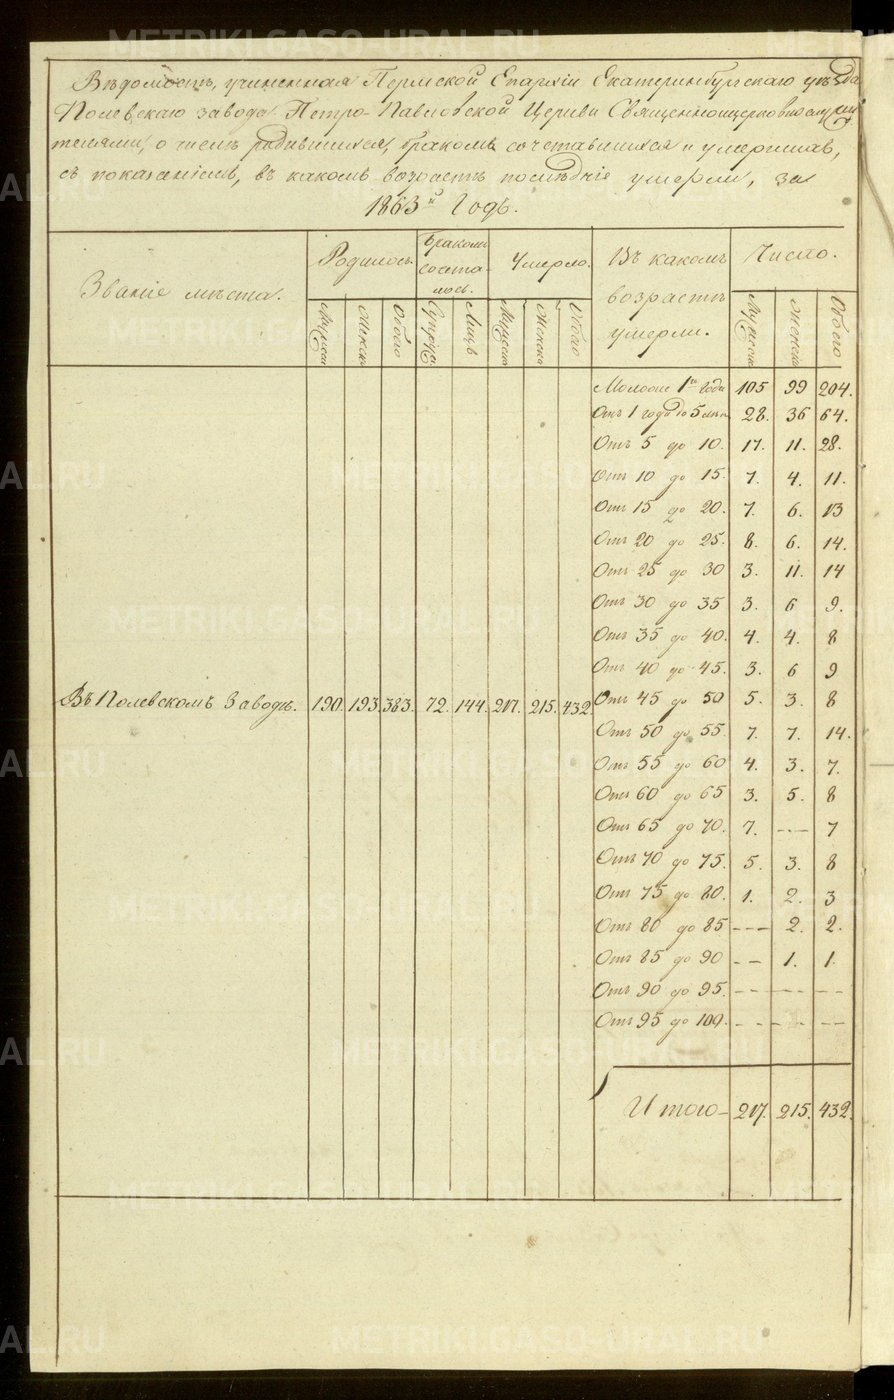 Вѣдомость, учиненная Пермской Епархіи Екатеринбургскаго уѣзда
Полевскаго завода Петро-Павловской Церкви Священноцерковнослужи
телями, о числѣ родившихся, бракомъ сочетавшихся и умершихъ,
съ показаніемъ, въ какомъ возрастѣ послѣдніе умерли, за
1863й Годъ.
Званіе мѣста. Родилось. Бракомъ сочета-лось. Умерло. Въ какомъ возрастѣ умерли. Число.
Мужска Женска Обоего Супруж Лицъ Мужска Женска Обоего Мужска Женска Обоего
Моложе 1го года 105 99 204.
Отъ 1 года до 5 лѣтъ 28. 36 64.
Отъ 5 до 10. 17. 11. 28.
Отъ 10 до 15. 7. 4. 11.
Отъ 15 до 20. 7. 6. 13
Отъ 20 до 25. 8. 6. 14.
Отъ 25 до 30 3. 11. 14
Отъ 30 до 35 3. 6 9.
Отъ 35 до 40. 4. 4. 8
Отъ 40 до 45. 3. 6 9
Въ Полевскомъ Заводѣ. 190. 193. 383. 72. 144. 217. 215. 432. Отъ 45 до 50 5. 3. 8
Отъ 50 до 55. 7. 7. 14.
Отъ 55 до 60 4. 3. 7.
Отъ 60 до 65 3. 5. 8
Отъ 65 до 70. 7. --- 7
Отъ 70 до 75. 5. 3. 8
Отъ 75 до 80. 1. 2. 3
Отъ 80 до 85 --- 2. 2.
Отъ 85 до 90 -- 1. 1.
Отъ 90 до 95. -- -- --
Отъ 95 до 100. -- -- --
Итого- 217. 215. 432.
METRIKI.GASO-URAL.RU